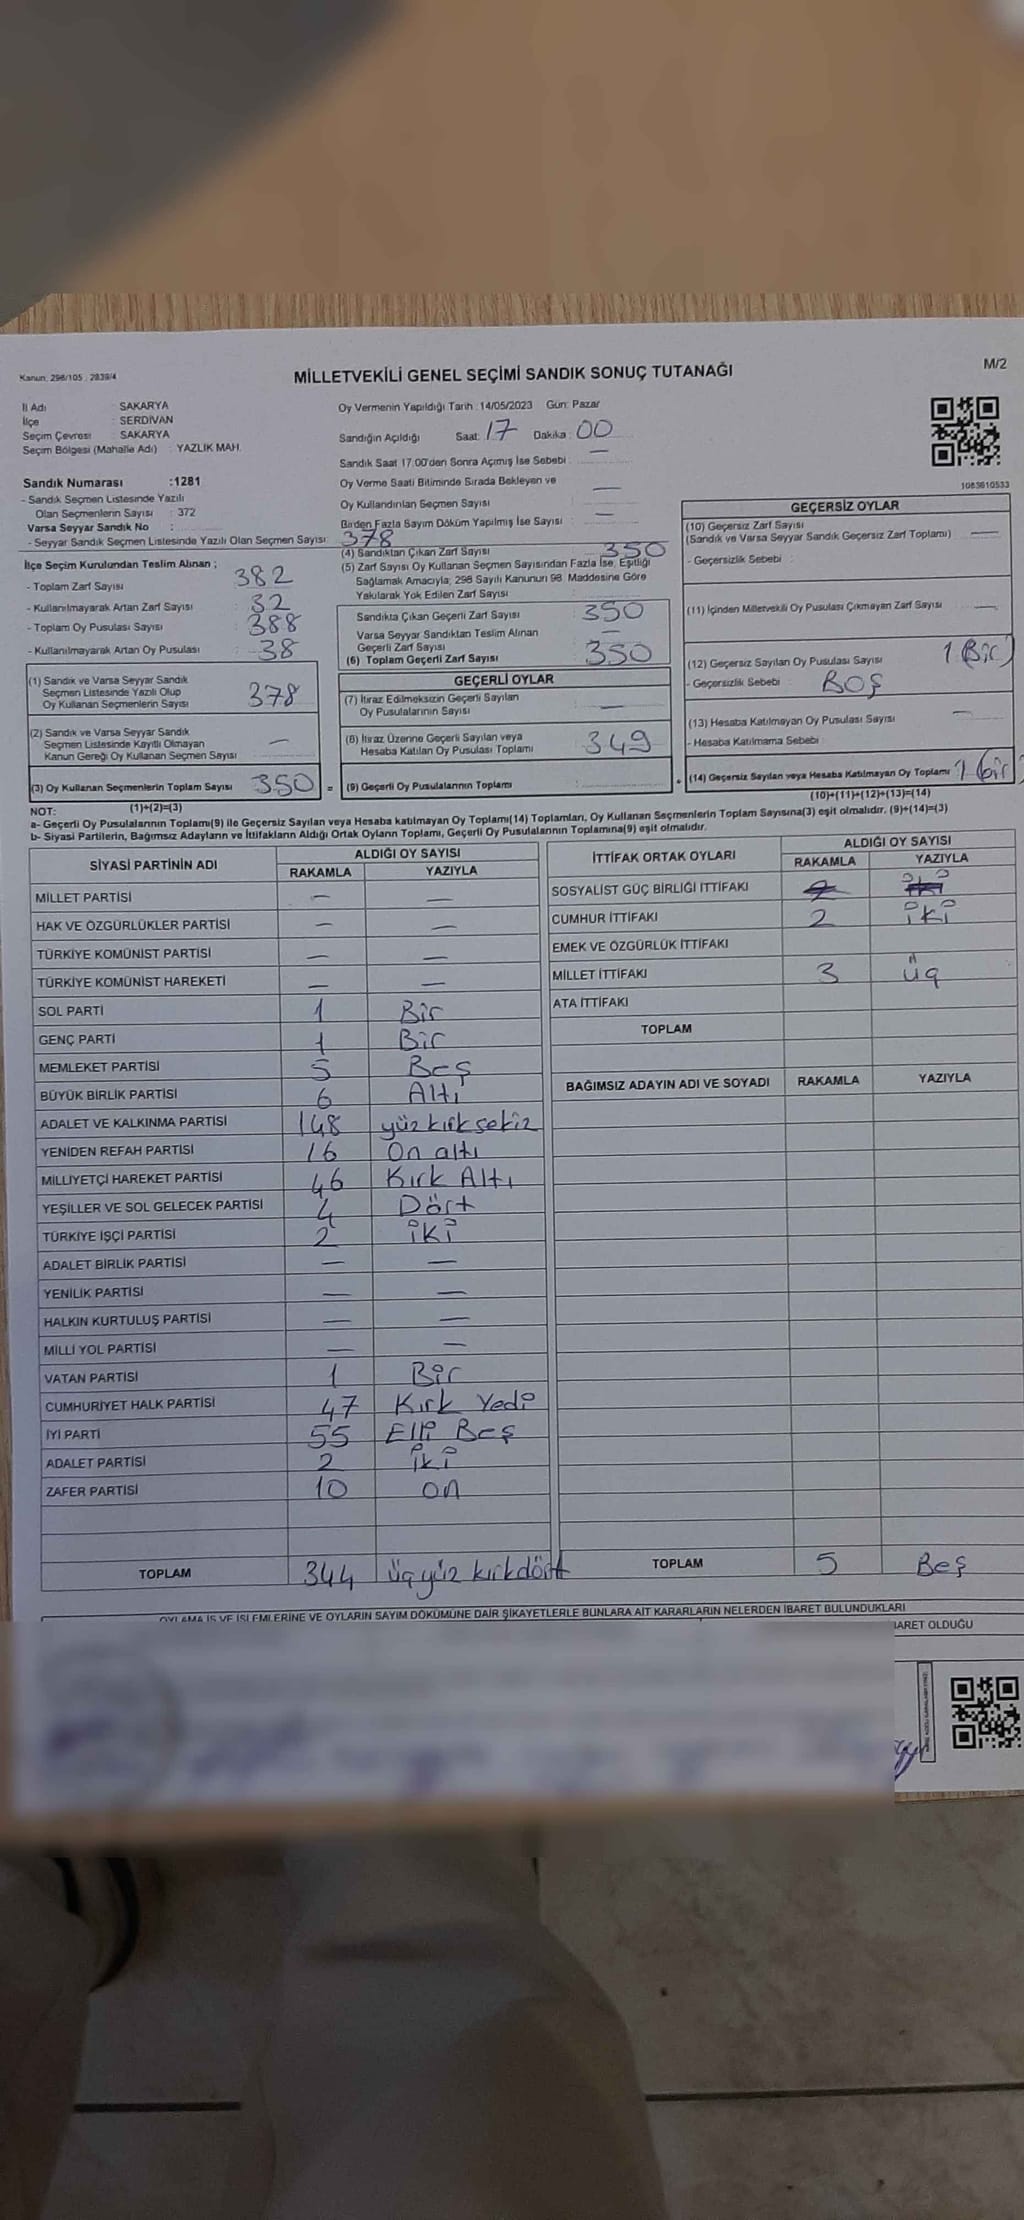 Kanun: 298/105 ; 2839/4
MİLLETVEKİLİ GENEL SEÇİMİ SANDIK SONUÇ TUTANAĞI
M/2
İl Adı : SAKARYA
İlçe : SERDİVAN
Seçim Çevresi : SAKARYA
Seçim Bölgesi (Mahalle Adı) : YAZLIK MAH.
Sandık Numarası :1281
- Sandık Seçmen Listesinde Yazılı
Olan Seçmenlerin Sayısı : 372
Varsa Seyyar Sandık No :
- Seyyar Sandık Seçmen Listesinde Yazılı Olan Seçmen Sayısı: 378
İlçe Seçim Kurulundan Teslim Alınan ;
- Toplam Zarf Sayısı : 382
- Kullanılmayarak Artan Zarf Sayısı : 32
- Toplam Oy Pusulası Sayısı : 388
- Kullanılmayarak Artan Oy Pusulası : 38
(1) Sandık ve Varsa Seyyar Sandık
Seçmen Listesinde Yazılı Olup
Oy Kullanan Seçmenlerin Sayısı 378
(2) Sandık ve Varsa Seyyar Sandık
Seçmen Listesinde Kayıtlı Olmayan
Kanun Gereği Oy Kullanan Seçmen Sayısı —
(3) Oy Kullanan Seçmenlerin Toplam Sayısı 350 =
(1)+(2)=(3)
Oy Vermenin Yapıldığı Tarih :14/05/2023 Gün: Pazar
Sandığın Açıldığı Saat: 17 Dakika : 00
Sandık Saat 17.00'den Sonra Açılmış İse Sebebi : —
Oy Verme Saati Bitiminde Sırada Bekleyen ve
Oy Kullandırılan Seçmen Sayısı : —
Birden Fazla Sayım Döküm Yapılmış İse Sayısı : —
(4) Sandıktan Çıkan Zarf Sayısı : 350
(5) Zarf Sayısı Oy Kullanan Seçmen Sayısından Fazla İse, Eşitliği
Sağlamak Amacıyla; 298 Sayılı Kanunun 98. Maddesine Göre
Yakılarak Yok Edilen Zarf Sayısı :
Sandıkta Çıkan Geçerli Zarf Sayısı : 350
Varsa Seyyar Sandıktan Teslim Alınan
Geçerli Zarf Sayısı : —
(6) Toplam Geçerli Zarf Sayısı : 350
GEÇERLİ OYLAR
(7) İtiraz Edilmeksizin Geçerli Sayılan
Oy Pusulalarının Sayısı : —
(8) İtiraz Üzerine Geçerli Sayılan veya
Hesaba Katılan Oy Pusulası Toplamı : 349
(9) Geçerli Oy Pusulalarının Toplamı : +
1083610533
GEÇERSİZ OYLAR
(10) Geçersiz Zarf Sayısı
(Sandık ve Varsa Seyyar Sandık Geçersiz Zarf Toplamı) : —
- Geçersizlik Sebebi :
(11) İçinden Milletvekili Oy Pusulası Çıkmayan Zarf Sayısı : —
(12) Geçersiz Sayılan Oy Pusulası Sayısı : 1 (Bir)
- Geçersizlik Sebebi : BOŞ
(13) Hesaba Katılmayan Oy Pusulası Sayısı : —
- Hesaba Katılmama Sebebi :
(14) Geçersiz Sayılan veya Hesaba Katılmayan Oy Toplamı : 1 (bir)
(10)+(11)+(12)+(13)=(14)
NOT:
a- Geçerli Oy Pusulalarının Toplamı(9) ile Geçersiz Sayılan veya Hesaba katılmayan Oy Toplamı(14) Toplamları, Oy Kullanan Seçmenlerin Toplam Sayısına(3) eşit olmalıdır. (9)+(14)=(3)
b- Siyasi Partilerin, Bağımsız Adayların ve İttifakların Aldığı Ortak Oyların Toplamı, Geçerli Oy Pusulalarının Toplamına(9) eşit olmalıdır.
SİYASİ PARTİNİN ADI ALDIĞI OY SAYISI
RAKAMLA YAZIYLA
MİLLET PARTİSİ — —
HAK VE ÖZGÜRLÜKLER PARTİSİ — —
TÜRKİYE KOMÜNİST PARTİSİ — —
TÜRKİYE KOMÜNİST HAREKETİ — —
SOL PARTİ 1 Bir
GENÇ PARTİ 1 Bir
MEMLEKET PARTİSİ 5 Beş
BÜYÜK BİRLİK PARTİSİ 6 Altı
ADALET VE KALKINMA PARTİSİ 148 yüz kırk sekiz
YENİDEN REFAH PARTİSİ 16 On altı
MİLLİYETÇİ HAREKET PARTİSİ 46 Kırk Altı
YEŞİLLER VE SOL GELECEK PARTİSİ 4 Dört
TÜRKİYE İŞÇİ PARTİSİ 2 iki
ADALET BİRLİK PARTİSİ — —
YENİLİK PARTİSİ — —
HALKIN KURTULUŞ PARTİSİ — —
MİLLİ YOL PARTİSİ — —
VATAN PARTİSİ 1 Bir
CUMHURİYET HALK PARTİSİ 47 Kırk Yedi
İYİ PARTİ 55 Elli Beş
ADALET PARTİSİ 2 iki
ZAFER PARTİSİ 10 on
TOPLAM 344 üçyüz kırkdört
İTTİFAK ORTAK OYLARI ALDIĞI OY SAYISI
RAKAMLA YAZIYLA
SOSYALİST GÜÇ BİRLİĞİ İTTİFAKI 2 iki
CUMHUR İTTİFAKI 2 iki
EMEK VE ÖZGÜRLÜK İTTİFAKI
MİLLET İTTİFAKI 3 üç
ATA İTTİFAKI
TOPLAM
BAĞIMSIZ ADAYIN ADI VE SOYADI RAKAMLA YAZIYLA
TOPLAM 5 Beş
OYLAMA İŞ VE İŞLEMLERİNE VE OYLARIN SAYIM DÖKÜMÜNE DAİR ŞİKAYETLERLE BUNLARA AİT KARARLARIN NELERDEN İBARET BULUNDUKLARI
BARET OLDUĞU